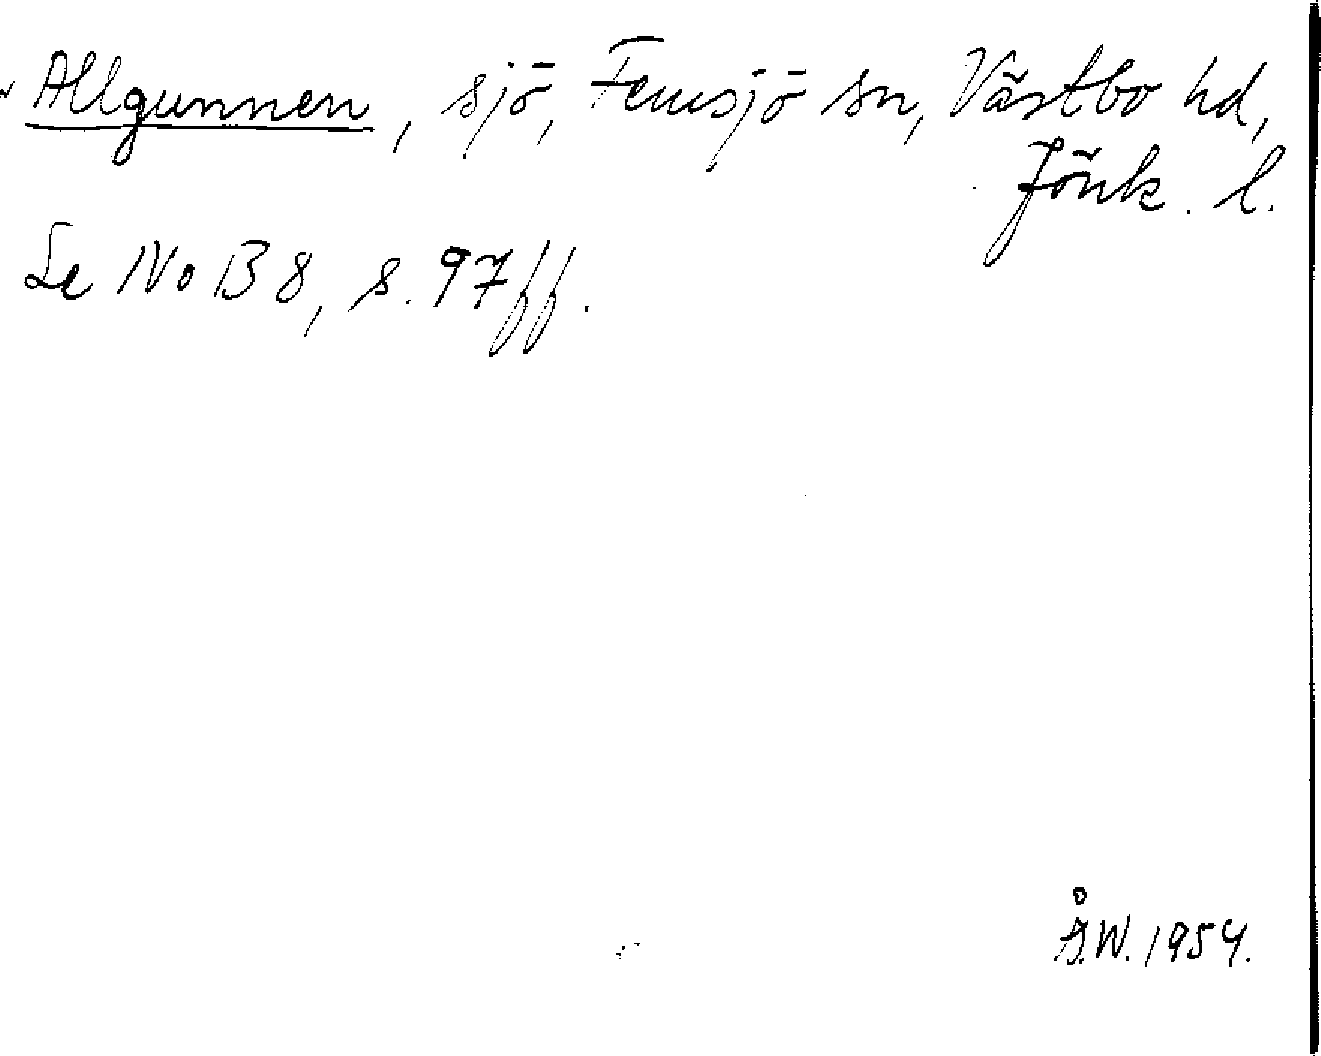 Allgunnen, sjö, Femsjö sn, Västbo hd,
Jönk. l.
Se NoB 8, s. 97 ff.
Å.W. 1954.